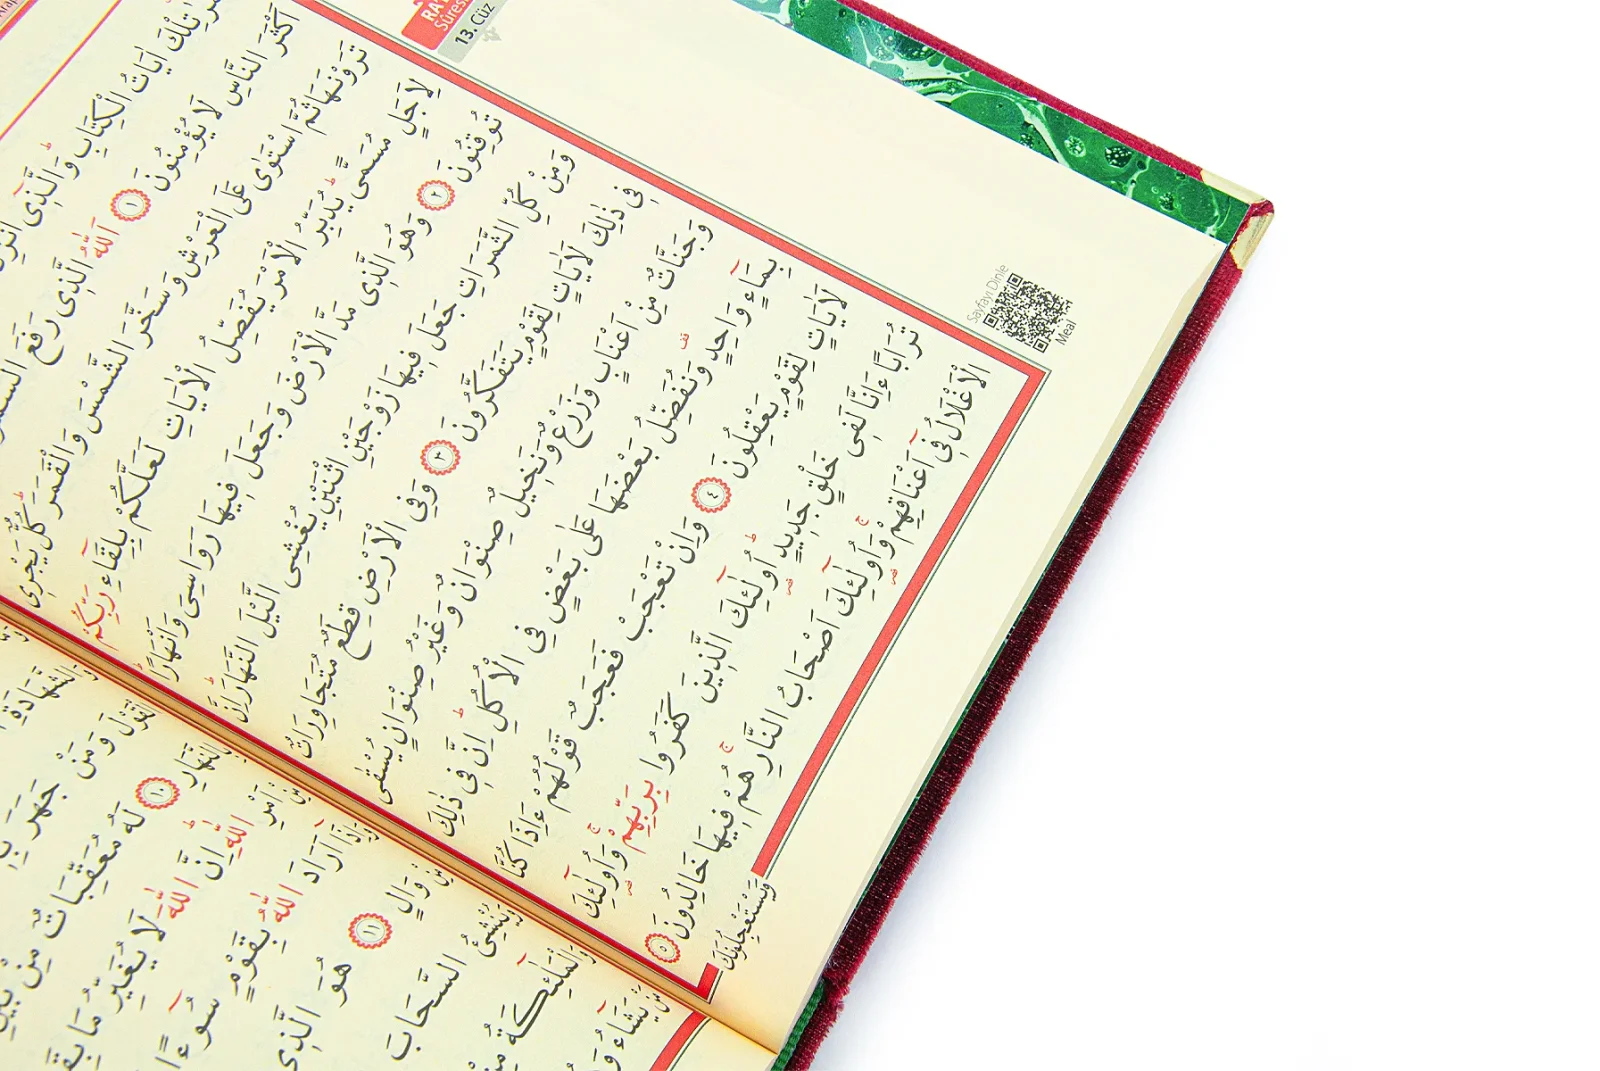 RA'D
Sûresi
13. Cüz
تِلْكَ اٰيَاتُ الْكِتَابِۜ وَالَّذِٓى
اَكْثَرَ النَّاسِ لَا يُؤْمِنُونَ ﴿١﴾ اَللّٰهُ الَّذِى رَفَعَ
تَرَوْنَهَا ثُمَّ اسْتَوٰى عَلَى الْعَرْشِ وَسَخَّرَ الشَّمْسَ وَالْقَمَرَۜ كُلٌّ يَجْرِى
لِاَجَلٍ مُسَمًّىۜ يُدَبِّرُ الْاَمْرَ يُفَصِّلُ الْاٰيَاتِ لَعَلَّكُمْ بِلِقَٓاءِ رَبِّكُمْ
تُوقِنُونَ ﴿٢﴾ وَهُوَ الَّذِى مَدَّ الْاَرْضَ وَجَعَلَ فِيهَا رَوَاسِىَ وَاَنْهَارًاۜ
وَمِنْ كُلِّ الثَّمَرَاتِ جَعَلَ فِيهَا زَوْجَيْنِ اثْنَيْنِ يُغْشِى الَّيْلَ النَّهَارَۜ اِنَّ
فِى ذٰلِكَ لَاٰيَاتٍ لِقَوْمٍ يَتَفَكَّرُونَ ﴿٣﴾ وَفِى الْاَرْضِ قِطَعٌ مُتَجَاوِرَاتٌ
وَجَنَّاتٌ مِنْ اَعْنَابٍ وَزَرْعٌ وَنَخِيلٌ صِنْوَانٌ وَغَيْرُ صِنْوَانٍ يُسْقٰى
بِمَٓاءٍ وَاحِدٍ وَنُفَضِّلُ بَعْضَهَا عَلٰى بَعْضٍ فِى الْاُكُلِۜ اِنَّ فِى ذٰلِكَ
لَاٰيَاتٍ لِقَوْمٍ يَعْقِلُونَ ﴿٤﴾ وَاِنْ تَعْجَبْ فَعَجَبٌ قَوْلُهُمْ ءَاِذَا كُنَّا
تُرَابًا ءَاِنَّا لَفِى خَلْقٍ جَدِيدٍۜ اُو۬لٰٓئِكَ الَّذِينَ كَفَرُوا بِرَبِّهِمْۚ وَاُو۬لٰٓئِكَ
الْاَغْلَالُ فِٓى اَعْنَاقِهِمْۚ وَاُو۬لٰٓئِكَ اَصْحَابُ النَّارِۚ هُمْ فِيهَا خَالِدُونَ ﴿٥﴾
وَيَسْتَعْجِلُونَكَ
Sayfayı Dinle
Meal
وَمَنْ جَهَرَ
﴿١٠﴾ لَهُ مُعَقِّبَاتٌ مِنْ بَيْنِ
اللّٰهِۜ اِنَّ اللّٰهَ لَا يُغَيِّرُ مَا
اَرَادَ اللّٰهُ بِقَوْمٍ سُٓوءًا
وَالٍ ﴿١١﴾ هُوَ الَّذِى
السَّحَابَ